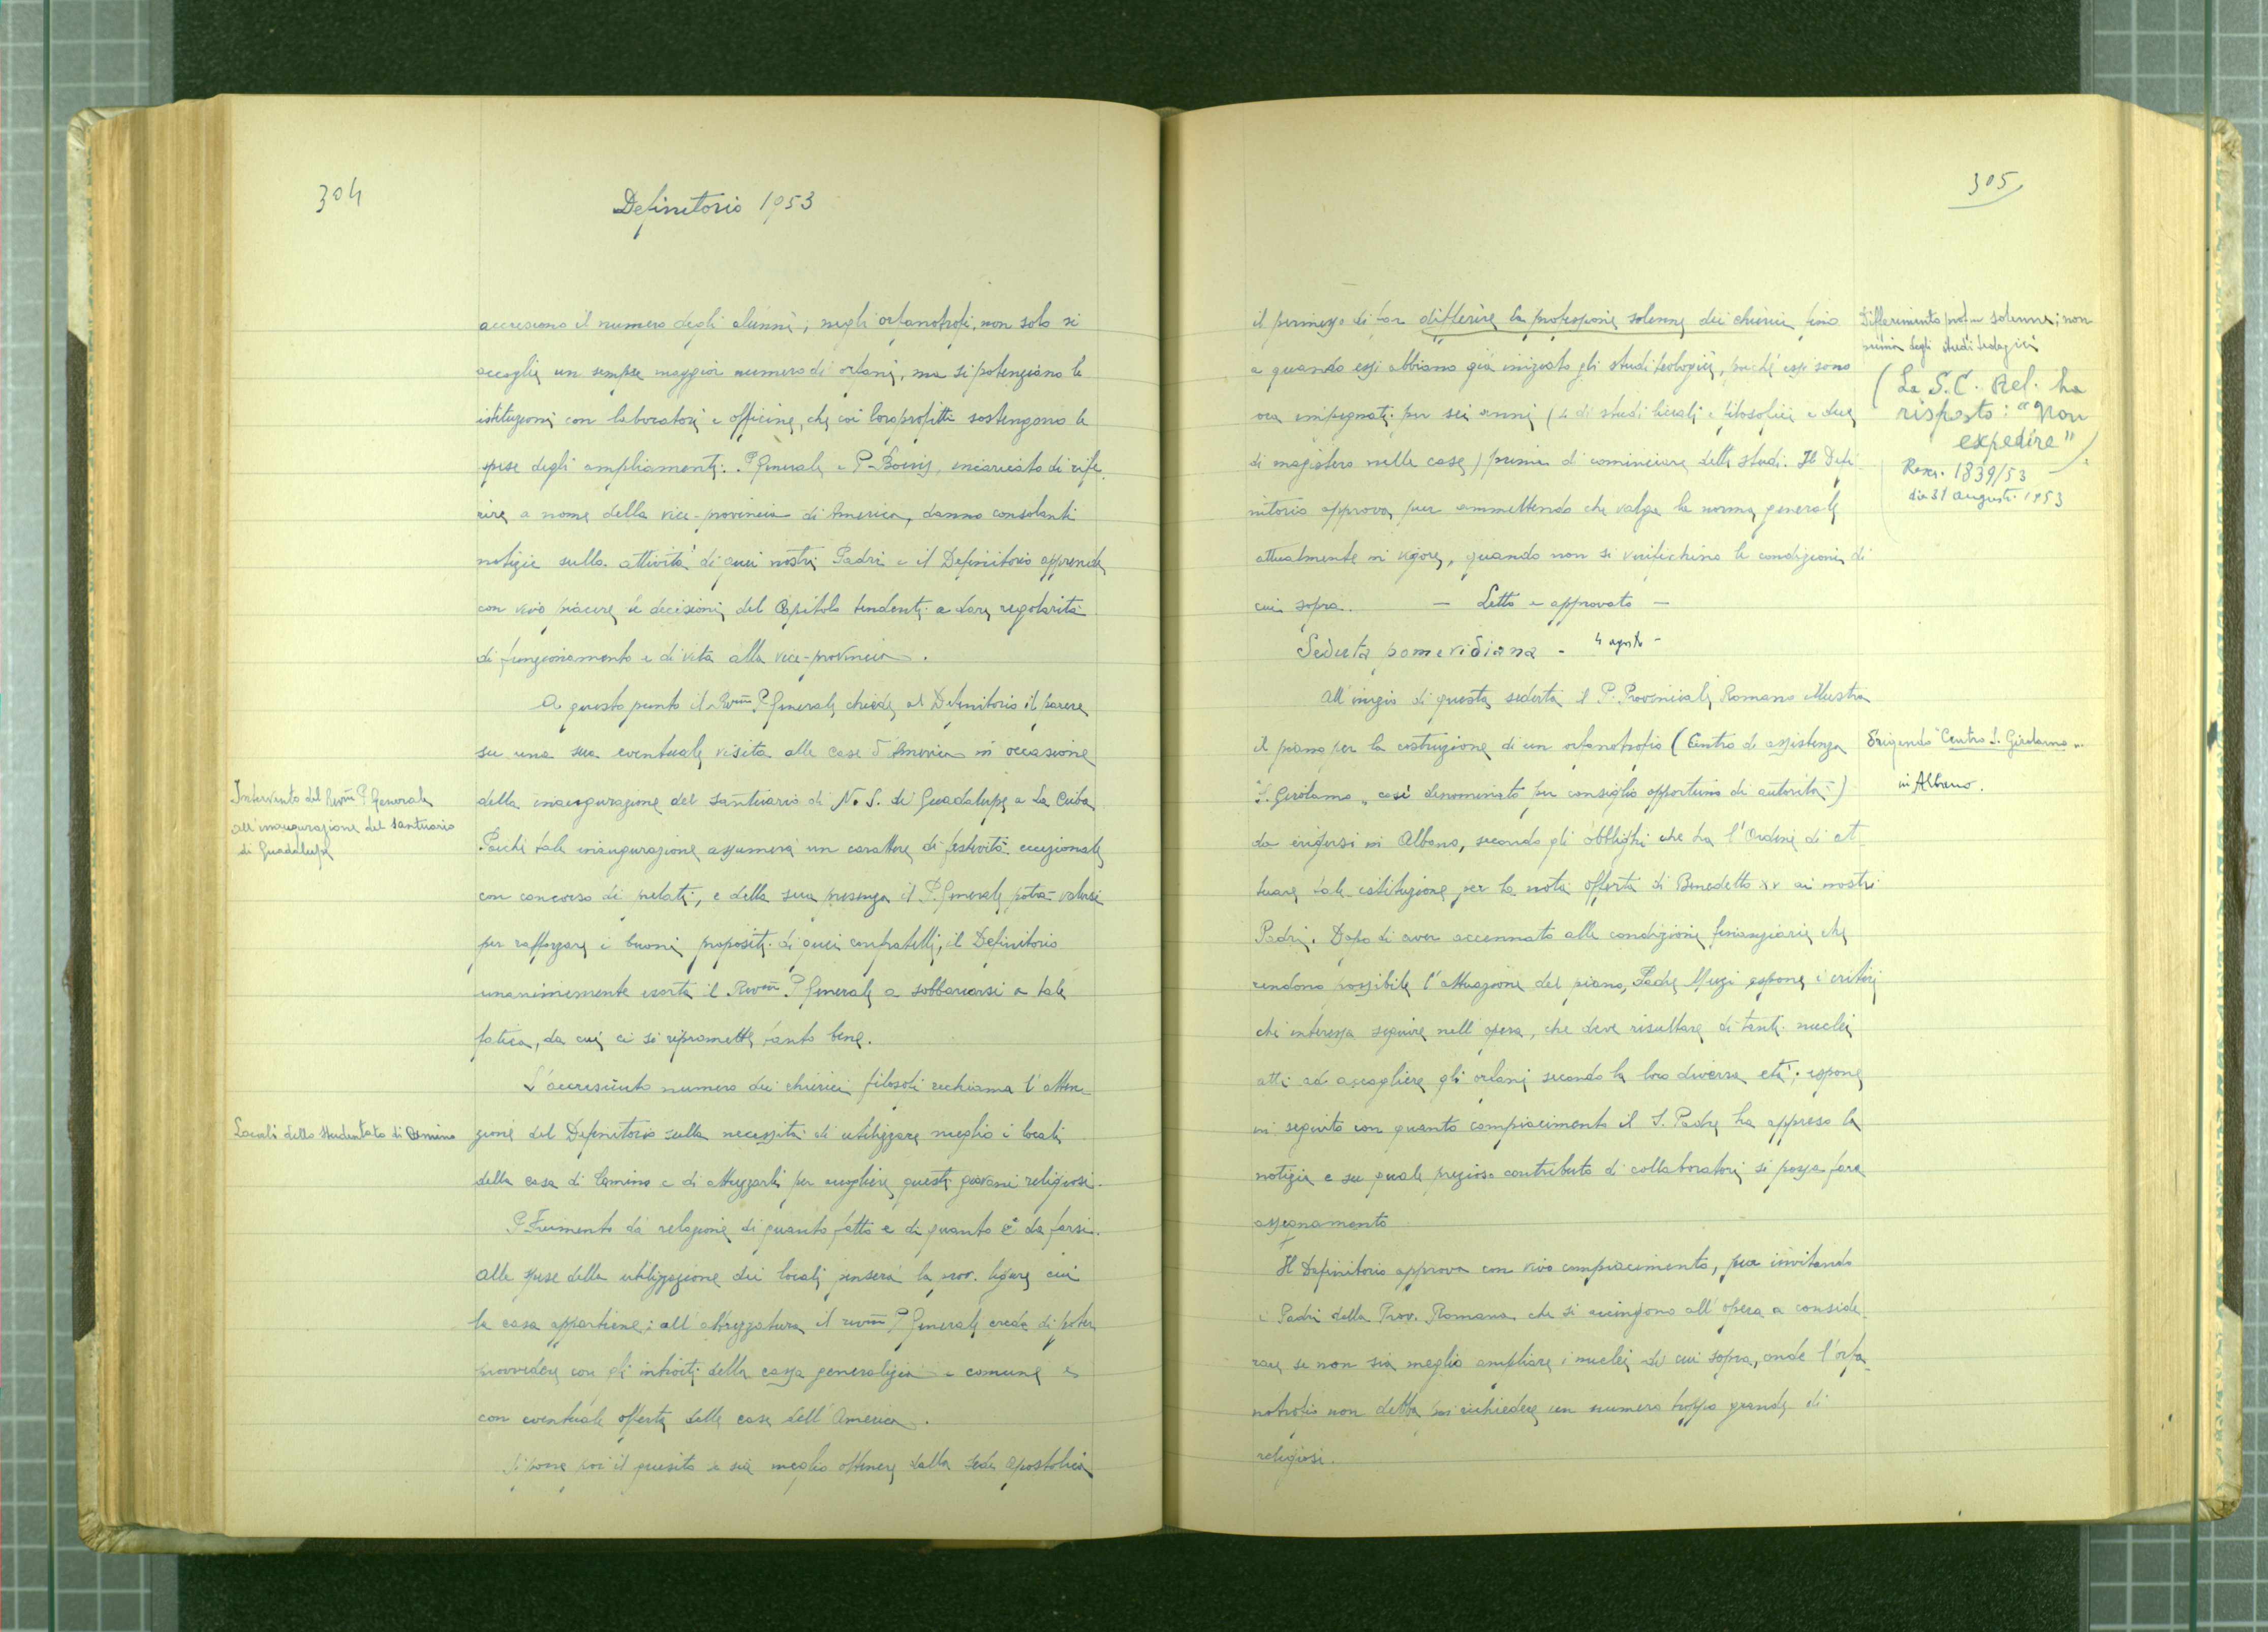 304
Definitorio 1953
accrescono il numero degli alunni; negli orfanotrofi, non solo si
accoglie un sempre maggior numero di orfani, ma si potenziano le
istituzioni con laboratori e officine, che coi loro profitti sostengono le
spese degli ampliamenti. P. Generale e P. incaricato di rife-
rire a nome della vice-provincia di America, danno consolanti
notizie sulla attività di quei nostri Padri e il Definitorio apprende
con vivo piacere le decisioni del Capitolo tendenti a dare regolarità
di funzionamento e di vita alla vice-provincia.
A questo punto il Rev.mo P. Generale chiede al Definitorio il parere
su una sua eventuale visita alle case d'America in occasione
Intervento del Rev.mo P. Generale
all'inaugurazione del santuario
di Guadalupe
della inaugurazione del santuario di N. S. di Guadalupe a La Ceiba
Poiché tale inaugurazione assumerà un carattere di festività eccezionale
con concorso di prelati, e della sua presenza il P. Generale potrà valersi
per rafforzare i buoni propositi di quei confratelli, il Definitorio
unanimemente esorta il Rev.mo P. Generale a sobbarcarsi a tale
fatica, da cui ci si ripromette tanto bene.
L'accresciuto numero dei chierici filosofi richiama l'atten-
Locali dello studentato di Camino
zione del Definitorio sulla necessità di utilizzare meglio i locali
della casa di Camino e di attrezzarli per accogliere questi giovani religiosi.
P. Frumento dà relazione di quanto fatto e di quanto è da farsi.
Alle spese della utilizzazione dei locali penserà la prov. ligure cui
la casa appartiene; all'attrezzatura il rev.mo P. Generale crede di poter
provvedere con gli introiti della cassa generalizia e comune e
con eventuale offerta delle case dell'America.
Si pone poi il quesito se sia meglio ottenere dalla Sede Apostolica
305
il permesso di far differire la professione solenne dei chierici fino
Differimento prof.ne solenne; non
prima degli studi teologici
a quando essi abbiano già iniziato gli studi teologici, poiché essi sono
(La S. C. Rel. ha
risposto: "Non
expedire")
Rescr. 1839/53
die 31 augusti 1953
ora impegnati per sei anni (4 di studi liceali e filosofici e due
di magistero nelle case) prima di cominciare detti studi. Il Defi-
nitorio approva, pur ammettendo che valga la norma generale
attualmente in vigore, quando non si verifichino le condizioni di
cui sopra. — Letto e approvato —
Seduta pomeridiana - 4 agosto -
All'inizio di questa seduta il P. Provinciale Romano illustra
il piano per la costruzione di un orfanotrofio (Centro di assistenza
Erigendo "Centro S. Girolamo"
in Albano.
"S. Girolamo" così denominato per consiglio opportuno di autorità)
da erigersi in Albano, secondo gli obblighi che ha l'Ordine di at-
tuare tale istituzione per la nota offerta di Benedetto XV ai nostri
Padri. Dopo di aver accennato alle condizioni finanziarie che
rendono possibile l'attuazione del piano, Padre Muzi espone i criteri
che interessa seguire nell'opera, che deve risultare di tanti nuclei
atti ad accogliere gli orfani secondo la loro diversa età; espone
in seguito con quanto compiacimento il S. Padre ha appreso la
notizia e su quale prezioso contributo di collaboratori si possa fare
assegnamento
Il Definitorio approva con vivo compiacimento, pur invitando
i Padri della Prov. Romana che si accingono all'opera a conside-
rare se non sia meglio ampliare i nuclei di cui sopra, onde l'orfa-
notrofio non debba poi richiedere un numero troppo grande di
religiosi.